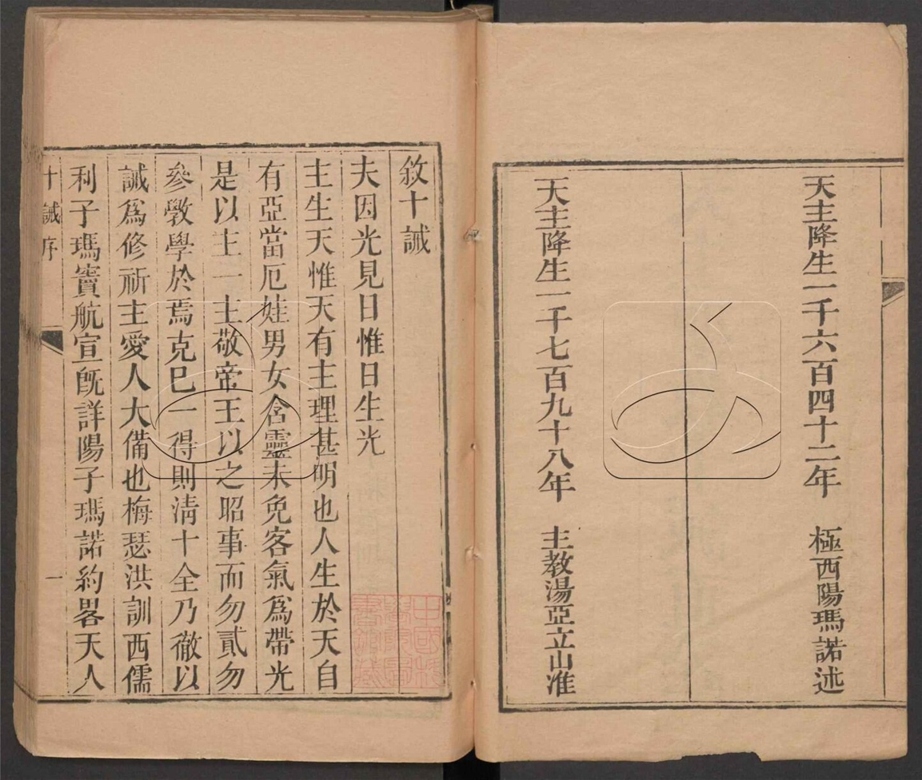 天主降生一千六百四十二年　極西陽瑪諾述
天主降生一千七百九十八年　主教湯亞立山准
敘十誡
夫因光見日惟日生光
主生天惟天有主理甚明也人生於天自
有亞當厄娃男女含靈未免客氣爲帶光
是以主一主敬帝王以之昭事而勿貳勿
參斆學於焉克巳一得則淸十全乃徹以
誡爲修祈主愛人大備也梅瑟洪訓西儒
利子瑪竇航宣旣詳陽子瑪諾約畧天人
十誡序
一